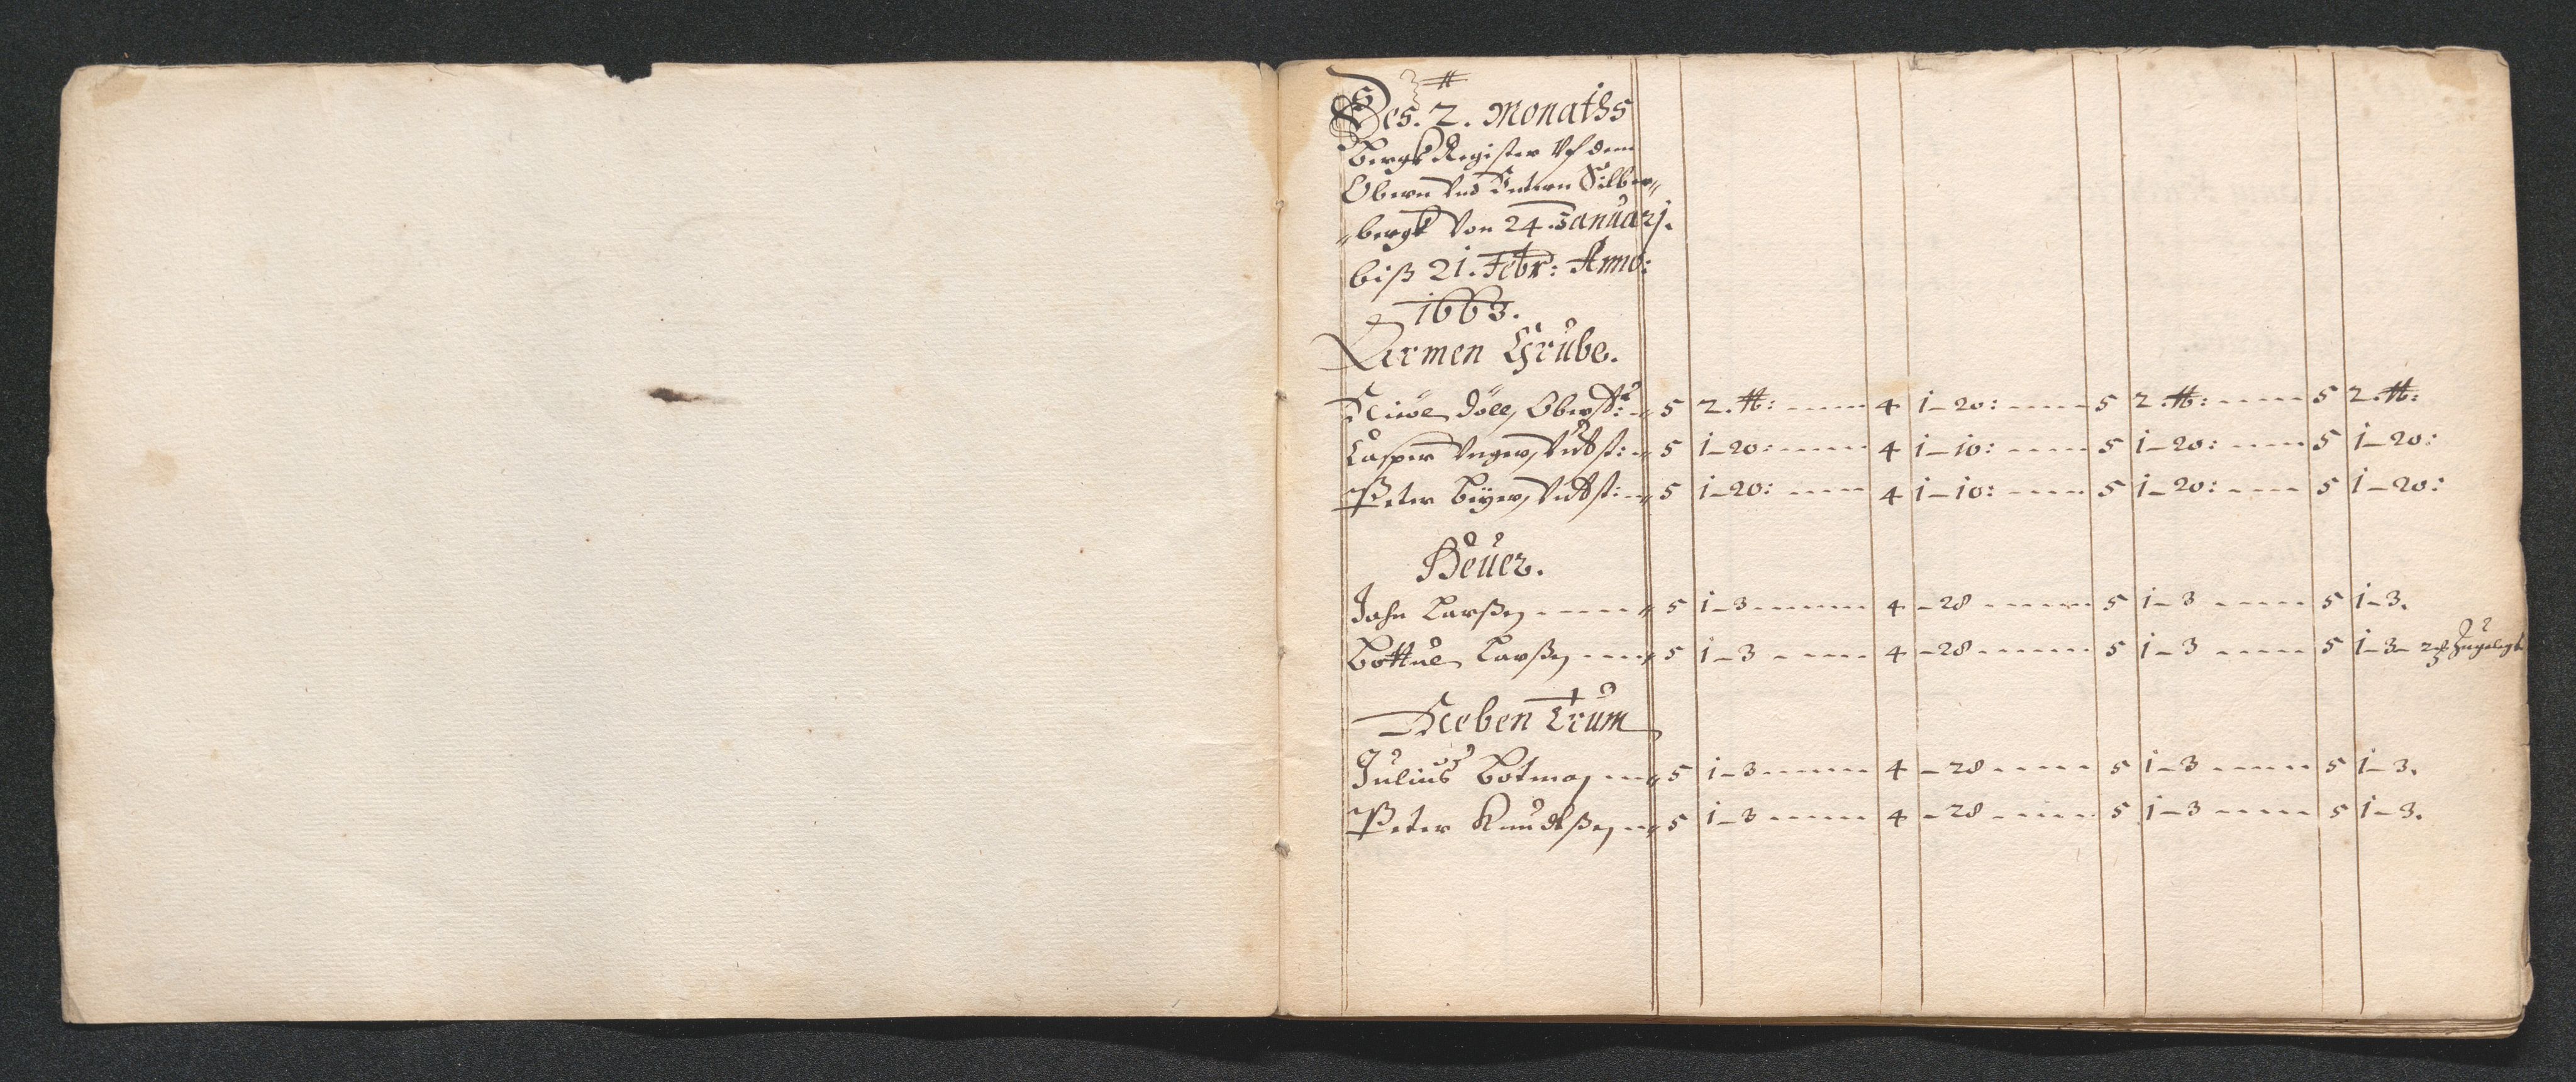 Des. 2. Monaths
Bergk Register Vf dem
Obern Vnd Intern Silber„
„bergk Von 24. Januarj.
biß 21. Febr: Anno:
1663.
Armen Grube.
Döll, Ober St: 5 2. ----- 4 1–20: ----- 5 2. ----- 5 2.
Casper Unger, Vndst: 5 1–20: ----- 4 1–10: ---- 5 1–20: ---- 5 1–20:
Peter Beÿer, Vndst: 5 1–20: ---- 4 1–10: ---- 5 1–20: ---- 5 1–20:
Heüer.
John Larßen ---- 5 1–3 ----- 4 –28 ----- 5 1–3 ----- 5 1–3.
Larßen ---- 5 1–3 ----- 4 –28 ----- 5 1–3 ----- 5 1–3– Zugelegt
Neben Trum
Julius Botman --- 5 1–3 ----- 4 –28 ----- 5 1–3 ----- 5 1–3.
Peter Knudtßen --- 5 1–3 ----- 4 –28 ----- 5 1–3 ----- 5 1–3.